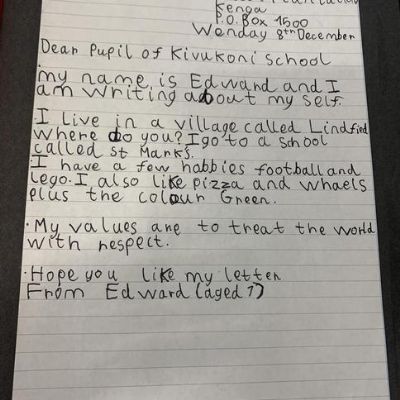 Kenga
P.O.Box 1500
Wenday 8th December
Dear Pupil of Kivukoni School
my name is Edward and I
am writing about my self.
I live in a village called Lindfied
where do you? I go to a school
called St Marks.
I have a few habbies football and
lego. I also like pizza and whaels
plus the colour Green.
· My values are to treat the world
with respect.
· Hope you like my letter
From Edward (aged 7)